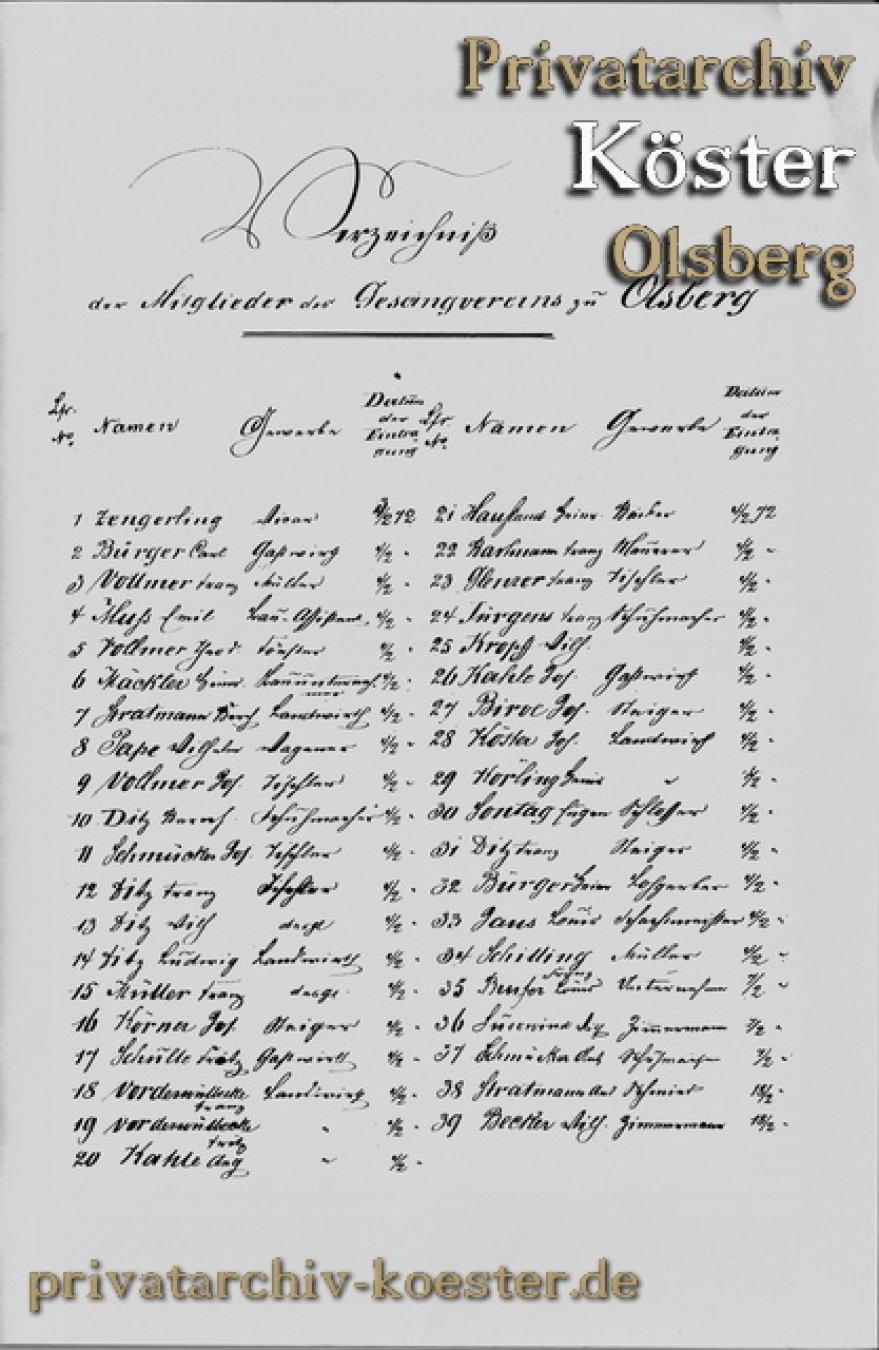 Privatarchiv
Köster
Olsberg
Verzeichniß
der Mitglieder des Gesangvereins zu Olsberg
Lfr. No. Namen Gewerbe Datum der Eintragung Lfr. No. Namen Gewerbe Datum der Eintragung
1 Zengerling Vicar 72 21 Bäcker 4/2 72
2 Bürger Carl Gastwirth 4/2 " 22 Hartmann Franz Maurer 4/2 "
3 Vollmer Franz Müller 4/2 " 23 Franz Tischler 4/2 "
4 Muß Emil Bau-Assistent 4/2 " 24 Jürgens Franz Schuhmacher 4/2 "
5 Vollmer Tischler 4/2 " 25 Kropff Wilh. 4/2 "
6 Mäckler Heinr. 4/2 " 26 Kahle Jos. Gastwirth 4/2 "
7 Stratmann Landwirth 4/2 " 27 Birve Jos. Steiger 4/2 "
8 Pape Wilhelm Wagener 4/2 " 28 Köster Jos. Landwirth 4/2 "
9 Vollmer Jos. Tischler 4/2 " 29 Hörling " 4/2 "
10 Ditz Schuhmacher 4/2 " 30 Sontag Eugen Schlosser 4/2 "
11 Schmücker Jos. Tischler 4/2 " 31 Ditz Franz Steiger 4/2 "
12 Ditz Franz Tischler 4/2 " 32 Bürger Heinr. Lohgerber 4/2 "
13 Ditz Wilh desgl 4/2 " 33 Louis Schachtmeister 4/2 "
14 Ditz Ludwig Landwirth 4/2 " 34 Schilling Müller 4/2 "
15 Müller Franz desgl. 4/2 " 35 Louis Unternehmer 7/2 "
16 Körner Jos. Steiger 4/2 " 36 Zimmermann 7/2 "
17 Schülte Fritz Gastwirth 4/2 " 37 Schmücker Schuhmacher 7/2 "
18 Vorderwülbecke Franz Landwirth 4/2 " 38 Stratmann Schmied 18/2 "
19 Vorderwülbecke Fritz " 4/2 " 39 Becker Wilh. Zimmermann 18/2 "
20 Kahle Aug " 4/2 "
privatarchiv-koester.de